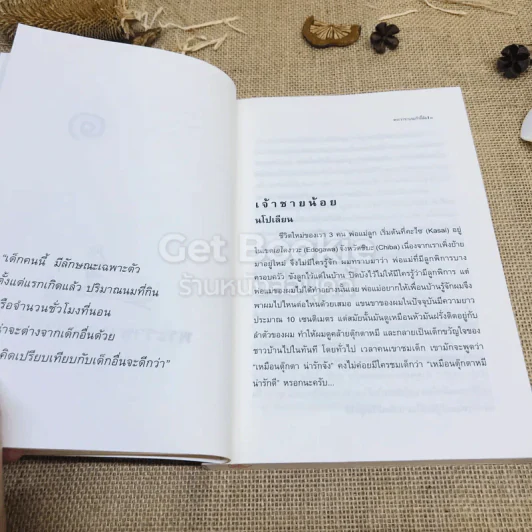 ๑
"เด็กคนนี้ มีลักษณะเฉพาะตัว
ตั้งแต่แรกเกิดแล้ว ปริมาณนมที่กิน
รือจำนวนชั่วโมงที่นอน
ว่าจะต่างจากเด็กอื่นด้วย
คิดเปรียบเทียบกับเด็กอื่นจะดีกว่า"
เจ้าชายน้อย
นโปเลียน
ชีวิตใหม่ของเรา 3 คน พ่อแม่ลูก เริ่มต้นที่คะไซ (Kasai) อยู่
ในเขตเอโดงาวะ (Edogawa) จังหวัดชิบะ (Chiba) เนื่องจากเราเพิ่งย้าย
มาอยู่ใหม่ จึงไม่มีใครรู้จัก ผมทราบมาว่า พ่อแม่ที่มีลูกพิการบาง
ครอบครัว ขังลูกไว้แต่ในบ้าน ปิดบังไว้ไม่ให้มีใครรู้ว่ามีลูกพิการ แต่
พ่อแม่ของผมไม่ได้ทำอย่างนั้นเลย พ่อแม่อยากให้เพื่อนบ้านรู้จักผมจึง
พาผมไปไหนต่อไหนด้วยเสมอ แขนขาของผมในปัจจุบันมีความยาว
ประมาณ 10 เซนติเมตร แต่สมัยนั้นมันดูเหมือนหัวมันฝรั่งติดอยู่กับ
ลำตัวของผม ทำให้ผมดูคล้ายตุ๊กตาหมี และกลายเป็นเด็กขวัญใจของ
ชาวบ้านไปในทันที โดยทั่วไป เวลาคนเขาชมเด็ก เขามักจะพูดว่า
"เหมือนตุ๊กตา น่ารักจัง" คงไม่ค่อยมีใครชมเด็กว่า "เหมือนตุ๊กตาหมี
น่ารักดี" หรอกนะครับ...